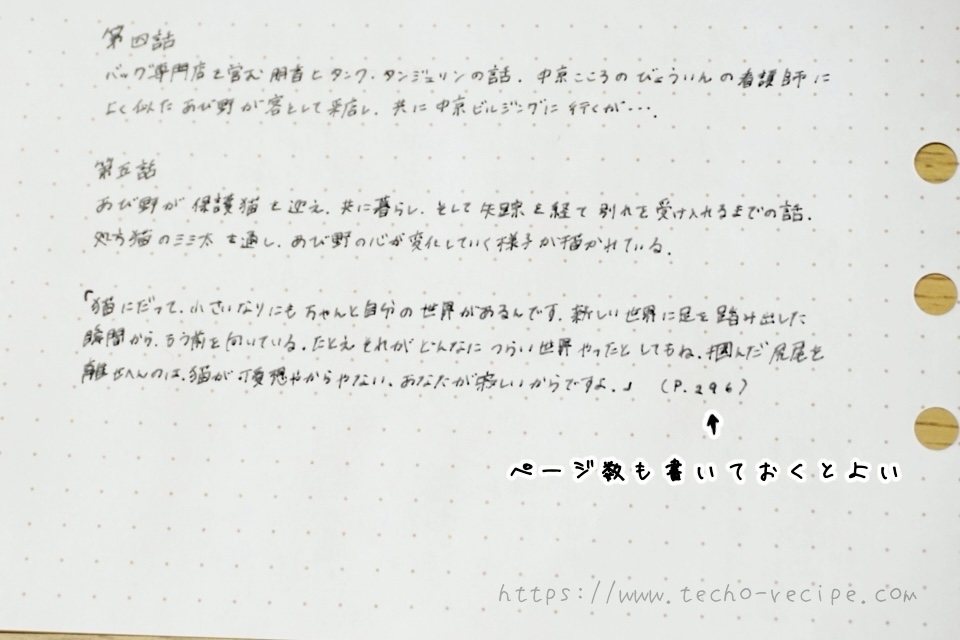 第四話
バッグ専門店を営む朋香とタンク・タンジェリンの話。中京こころのびょういんの看護師に
よく似たあび野が客として来店し、共に中京ビルジングに行くが・・・。
第五話
あび野が保護猫を迎え、共に暮らし、そして失踪を経て別れを受け入れるまでの話。
処方猫のミミ太を通し、あび野の心が変化していく様子が描かれている。
「猫にだって、小さいなりにもちゃんと自分の世界があるんです。新しい世界に足を踏み出した
瞬間から、もう前を向いている。たとえそれがどんなにつらい世界やったとしてもね。掴んだ尻尾を
離せへんのは、猫が可哀想やからやない。あなたが寂しいからですよ。」 (P.296)
↑
ページ数も書いておくとよい
https://www.techo-recipe.com